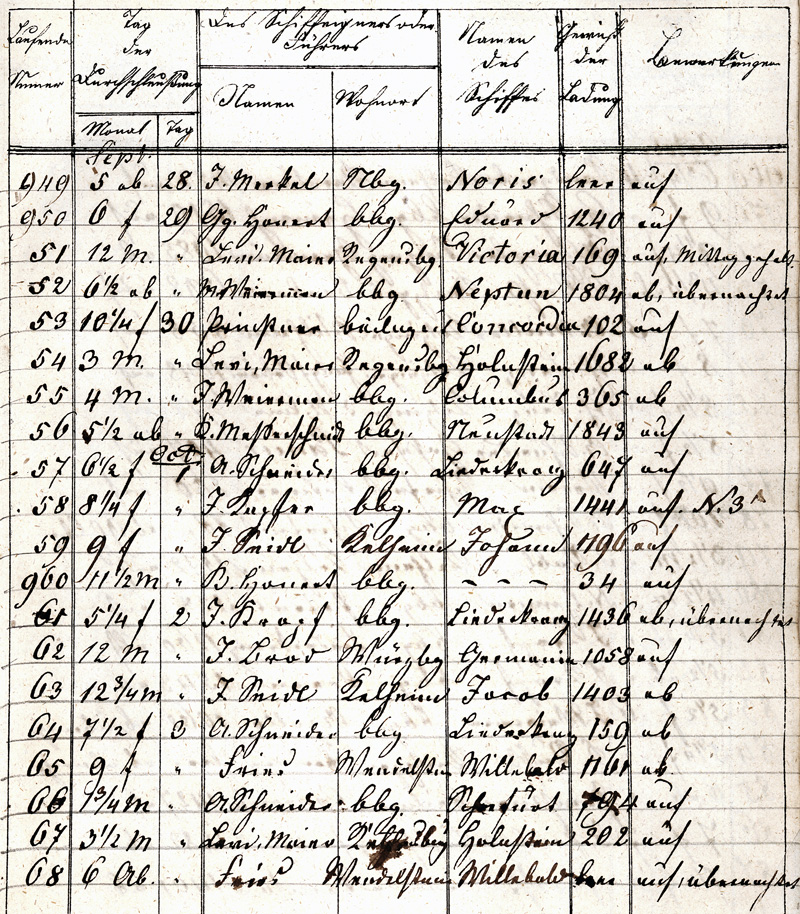 Laufende Numer
Tag der Durchschleußung
Des Schiffeigners oder Führers
Namen des Schiffes
Gewicht der Ladung
Bemerkungen
Monat Tag Namen Wohnort
Sept.
949 5 ab 28. J. Merkel Nbg. Noris leer auf
950 6 f 29 Gg. Honert bbg. Eduard 1240 auf
51 12 M. " Levi. Maier Regensbg. Victoria 169 auf, Mittag gehalt.
52 6½ ab " M Weiermen bbg. Neptun 1804 ab, übernachtet
53 10¼ f 30 Concordia 102 auf
54 3 M. " Levi, Maier Regensbg Holnstein 1682 ab
55 4 M. " J Weiermen bbg. Columbus 365 ab
56 5½ ab " K. Messerschmidt bbg. Neustadt 1843 auf
Oct.
57 6½ f 1 A. Schneider bbg. Liederkranz 647 auf
58 8¼ f " J. Kapfer bbg. Max 1441 auf. N. 3
59 9 f " J. Seidl Kelheim Johann 1196 auf
960 11½ M " B. Honert bbg. - - - 34 auf
61 5¼ f 2 J. Kropf bbg. Liederkranz 1436 ab, übernachtet
62 12 M " J. Brod Würzbg Germania 1058 auf
63 12¾ M " J Seidl Kelheim Jacob 1403 ab
64 7½ f 3 A. Schneider bbg Liederkranz 159 ab
65 9 f " Fries Wendelstein Willebald 1161 ab
66 1¾ M " A Schneider bbg. 794 auf
67 3½ M " Levi, Maier Holnstein 202 auf
68 6 Ab. " Fries Wendelstein Willebald leer auf, übernachtet